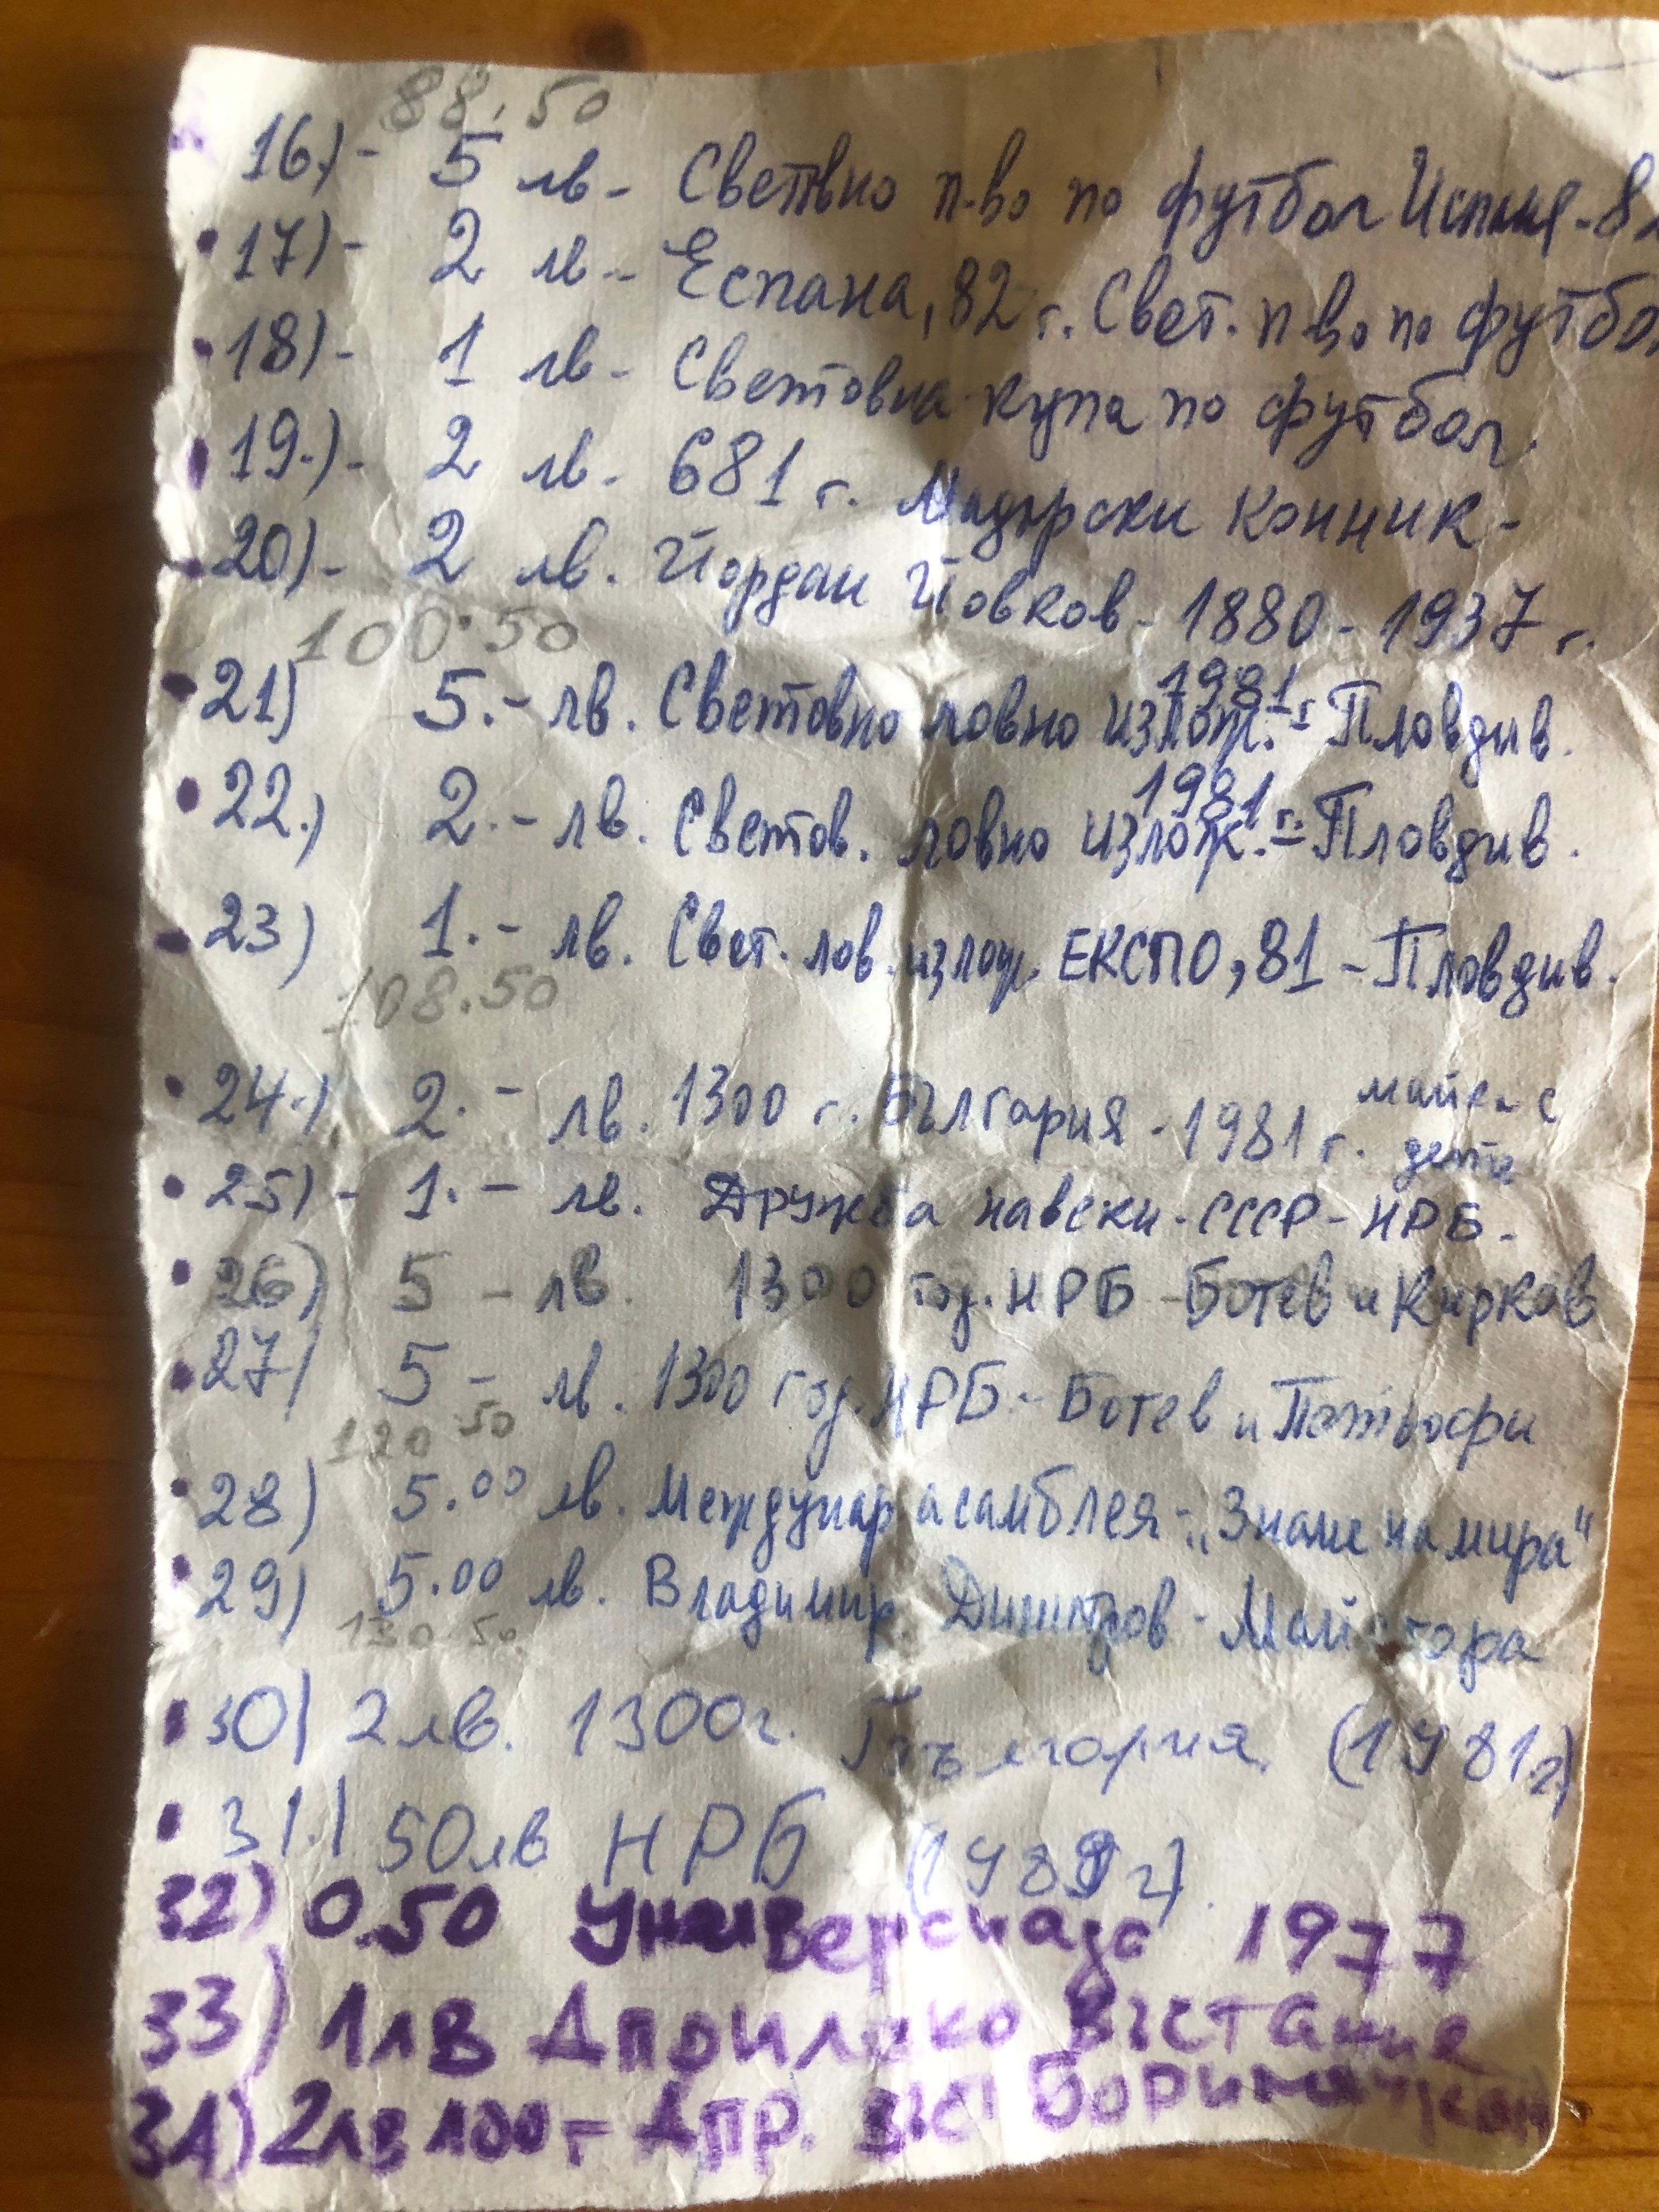 88.50
16.)- 5 лв- Светвно п-во по футбол Испания-82
17)- 2 лв- Еспана,82 г. Свет. п во по футбол
18)- 1 лв- Световна купа по футбол.
19.)- 2 лв- 681 г. Мадарски конник-
20)- 2 лв. Йордан Йовков-1880-1937 г.
100.50
21) 5.- лв. Световно ловно излож.- 1981 г Пловдив.
22.) 2.- лв. Светов. ловно излож.- 1981 г. Пловдив.
23) 1.- лв. Свет. лов. излож. ЕКСПО,81-Пловдив.
108.50
24.) 2.- лв. 1300 г. България-1981 г. майка с дете
25)- 1.- лв. Дружба навеки-СССР-НРБ.
26) 5 - лв. 1300 год. НРБ-Ботев и Кирков
27) 5 - лв. 1300 год. НРБ-Ботев и
120.50
28) 5.00 лв. Междунар асамблея-„Знаме на мира"
29) 5.00 лв. Владимир Димитров-Майстора
130.50
30) 2лв. 1300г. България (1981г)
31.) 50лв НРБ (1989г).
32) 0.50 Универсиада 1977
33) 1лв Априлско въстание
34) 2лв 100г Апр. въст